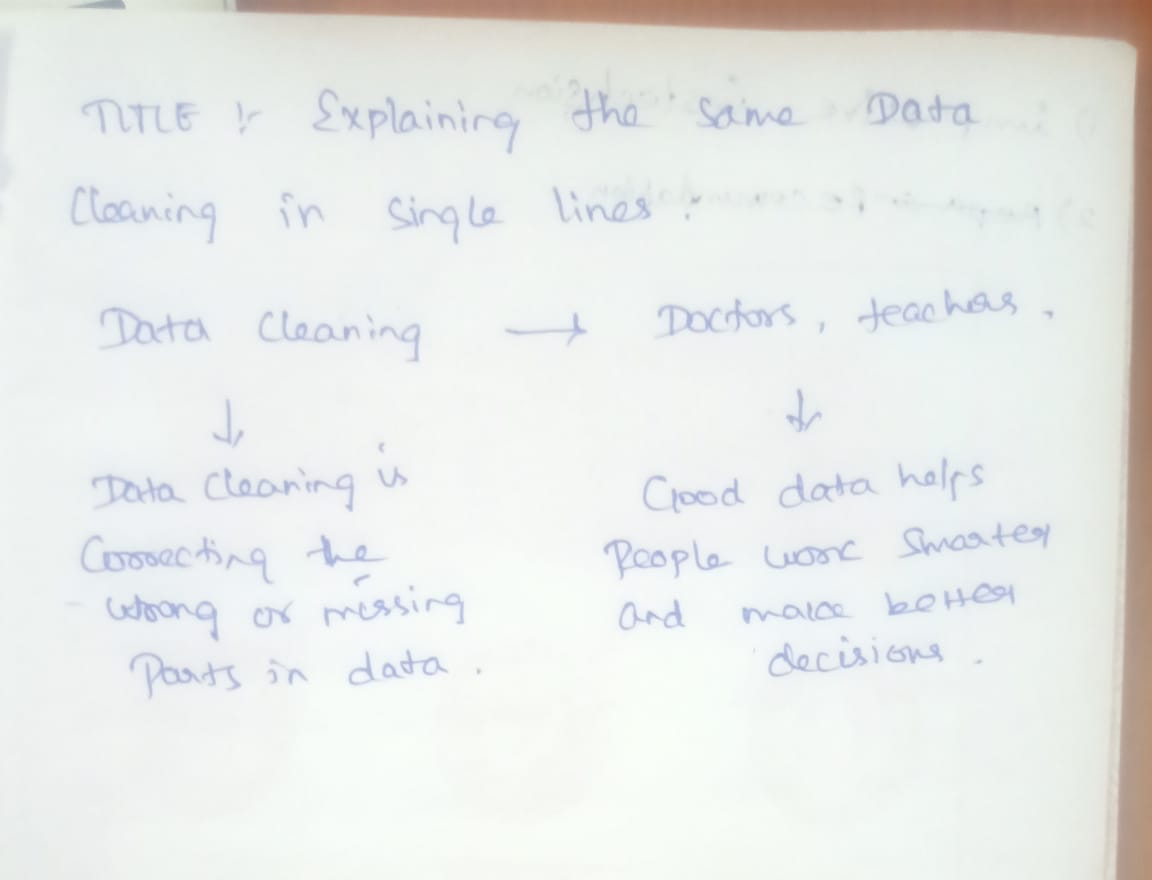 TITLE :- Explaining the same Data
Cleaning in single lines.
Data Cleaning → Doctors, teachers.
↓ ↓
Data Cleaning is
Correcting the
wrong or missing
Parts in data.
Good data helps
People work Smarter
and make better
decisions.